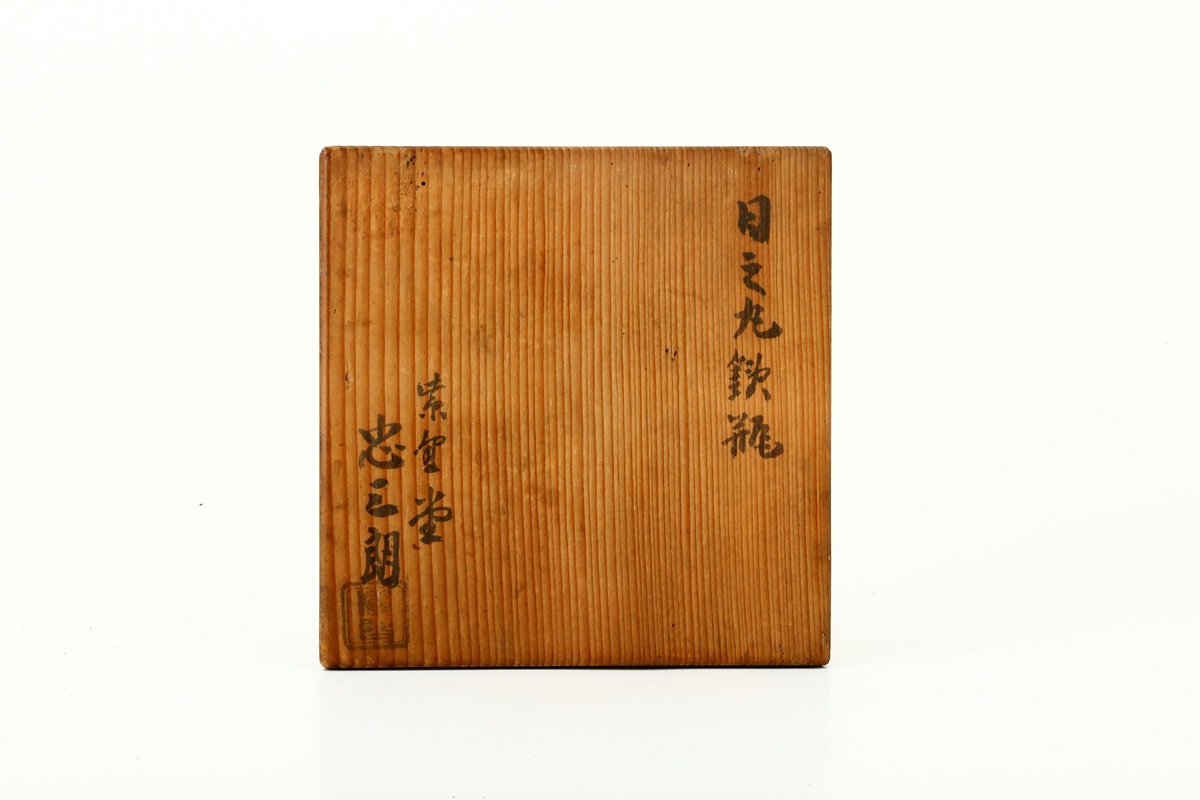 日之丸鉄瓶
紫金堂
忠三朗